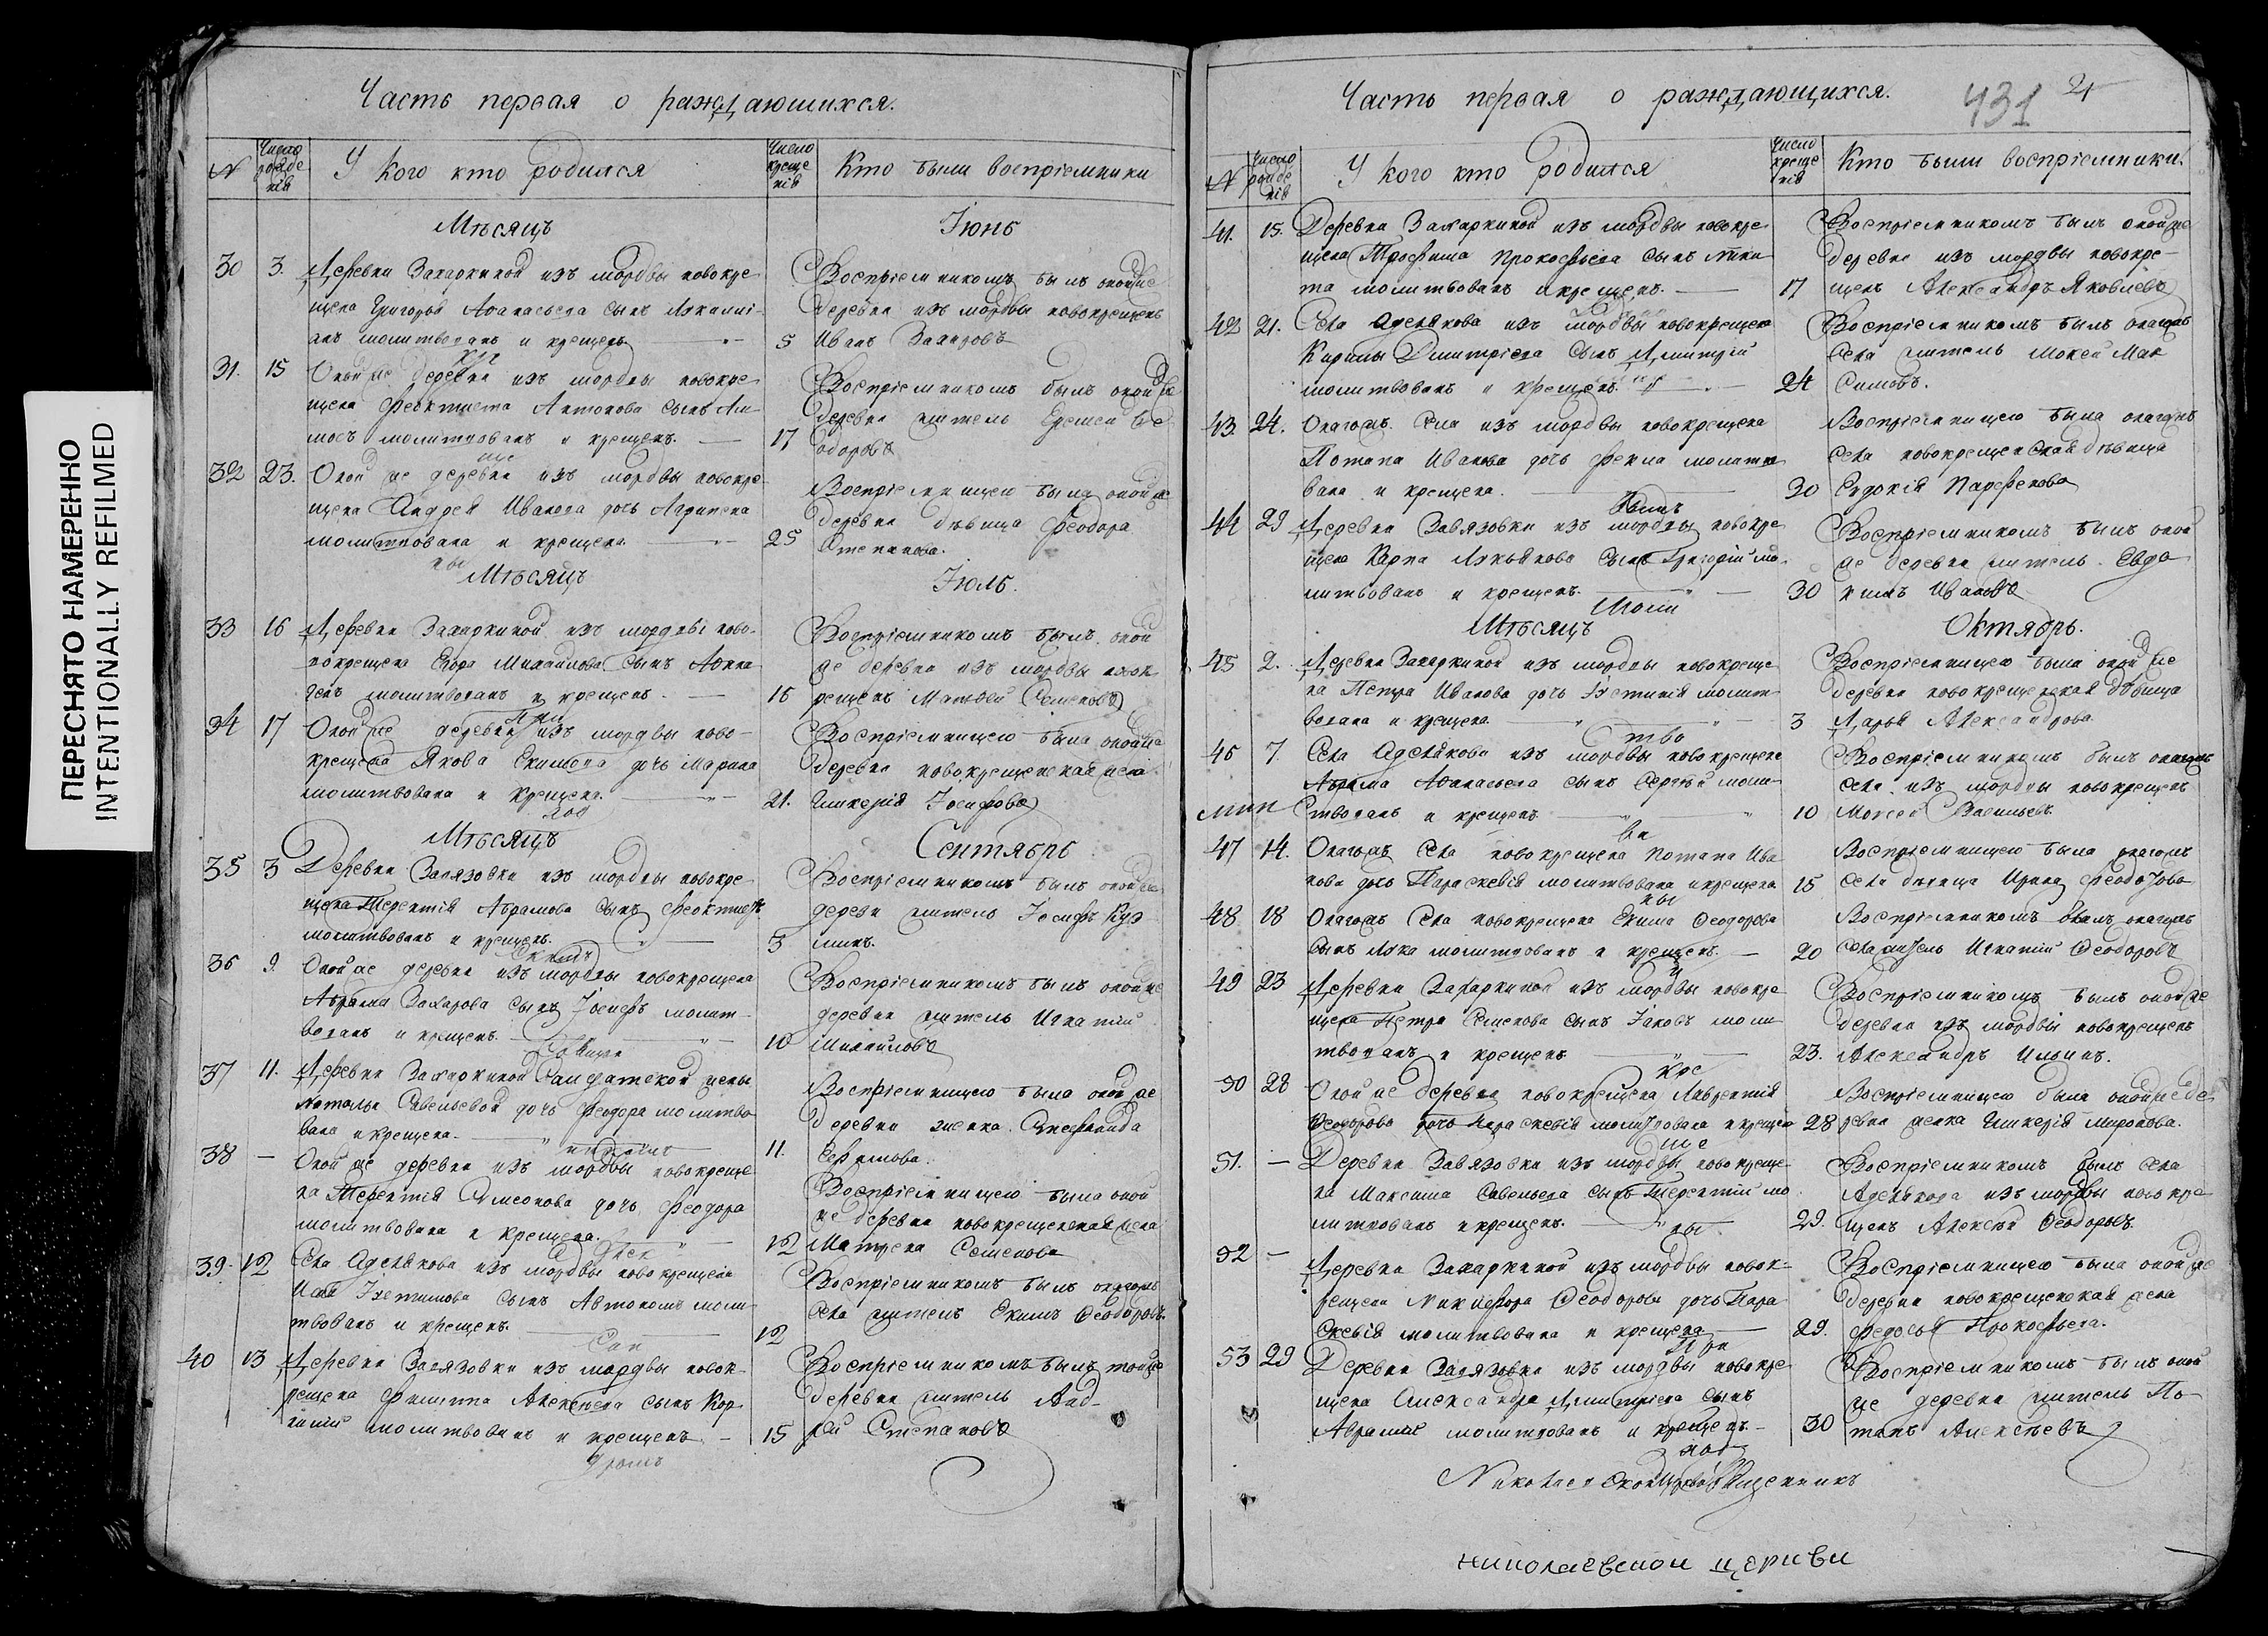 ПЕРЕСНЯТО НАМЕРЕННО
INTENTIONALLY REFILMED
Часть первая о раждающихся.
№
Число рожде нія
У кого кто родился
Число креще нія
Кто были воспріемники
Мѣсяцъ Іюнь
30 3. Деревни Захаркиной изъ мордвы новокре
щена Григорья Афанасьева сынъ
молитвованъ и крещенъ
5
Воспріемникомъ былъ оной же
деревни изъ мордвы новокрещенъ
Иванъ Захаровъ
31. 15 Оной же деревни изъ мордвы новокре
щена Феоктиста Антонова сынъ Ам
мосъ молитвованъ и крещенъ.
17
Воспріемникомъ былъ оной же
деревни житель Еремей Ѳе
одоровъ
32 23. Оной же деревни изъ мордвы новокре
щена Андрея Иванова дочь Агрипена
молитвована и крещена.
25
Воспріемницей была оной же
деревни дѣвица Феодора
Степанова.
Мѣсяцъ Іюль.
33 16 Деревни Захаркиной изъ мордвы ново
покрещена Егора Михаилова сынъ
молитвованъ и крещенъ.
16
Воспріемникомъ былъ оной
же деревни изъ мордвы новок
рещенъ Матвей Семеновъ
34 17 Оной же деревни изъ мордвы ново
крещена Якова Екимова дочь Марина
молитвована и крещена.
21.
Воспріемницею была оной же
деревни новокрещенская жена
Гликерія Іосифова
Мѣсяцъ Сентябрь
35 3 Деревни Завязовки изъ мордвы новокре
щена Терентія Абрамова сынъ Феоктистъ
молитвованъ и крещенъ.
3
Воспріемникомъ былъ оной же
деревни житель Іосифъ Куз
минъ.
36 9. Оной же деревни изъ мордвы новокрещена
Абрама Захарова сынъ Іосифъ молит
вованъ и крещенъ.
10
Воспріемникомъ былъ оной же
деревни житель Игнатій
Михаиловъ
37 11. Деревни Захаркиной Салдатской жены
Натальи Савельевой дочь Феодора молитво
вана и крещена.
11.
Воспріемницею была оной же
деревни женка
Ефимова.
38 — Оной же деревни изъ мордвы новокреще
на Терентія Симеонова дочь Феодора
молитвована и крещена.
12
Воспріемницею была оной
же деревни новокрещенская жена
Матрена Семенова
39. 12 Села Аделякова изъ мордвы новокрещена
сынъ Автономъ моли
твованъ и крещенъ.
12
Воспріемникомъ былъ онагожъ
села житель Екимъ Ѳеодоровъ.
40 13 Деревни Завязовки изъ мордвы новок
рещена Филиппа Алексѣева сынъ Кор
нилій молитвованъ и крещенъ
15
Воспріемникомъ былъ тойже
деревни житель Анд
рей Степановъ
Часть первая о раждающихся.
431
№
Число рожде нія
У кого кто родился
Число креще нія
Кто были воспріемники.
41. 15. Деревни Захаркиной изъ мордвы новокре
щена Трофима Прокофьева сынъ Ники
та молитвованъ и крещенъ.
17
Воспріемникомъ былъ оной же
деревни изъ мордвы новокре
щенъ Александръ Яковлевъ
42 21. Села Аделякова изъ мордвы новокрещена
Кирилы Дмитріева сынъ Дмитрій
молитвованъ и крещенъ.
24
Воспріемникомъ былъ онагожъ
села житель Мокей Мак
симовъ.
43. 24. Онагожъ села изъ мордвы новокрещена
Потапа Иванова дочь Фекла молитво
вана и крещена.
30
Воспріемницею была онагожъ
села новокрещенская дѣвица
Евдокія Парфенова
44 29 Деревни Завязовки изъ мордвы новокре
щена Карпа Лукьянова сынъ Григорій мо
литвованъ и крещенъ.
30
Воспріемникомъ былъ оной
же деревни житель Евдо
кимъ Ивановъ
Мѣсяцъ Октябрь.
45 2. Деревни Захаркиной изъ мордвы новокреще
на Петра Иванова дочь молит
вована и крещена.
3
Воспріемницею была оной же
деревни новокрещенская дѣвица
Дарья Александрова
46 7. Села Аделякова изъ мордвы новокрещена
Абрама Афанасьева сынъ Сергѣй моли
твованъ и крещенъ
10
Воспріемникомъ былъ онагожъ
села изъ мордвы новокрещенъ
Мокей Васильевъ.
47 14. Онагожъ села новокрещена Потапа Ива
нова дочь Параскевія молитвована и крещена
15
Воспріемницею была онагожъ
села дѣвица Ирина Феодотова
48 18 Онагожъ села новокрещена Екима Ѳеодорова
сынъ Лука молитвованъ и крещенъ.
20
Воспріемникомъ былъ онагожъ
села житель Игнатій Ѳеодоровъ
49 23 Деревни Захаркиной изъ мордвы новокре
щена Петра Семенова сынъ Іаковъ моли
твованъ и крещенъ
23.
Воспріемникомъ былъ оной же
деревни изъ мордвы новокрещенъ
Александръ Ильинъ.
50 28 Оной же деревни новокрещена Лаврентія
Ѳеодорова дочь Параскевія молитвована и крещена
28
Воспріемницею была оной же де
ревни женка Гликерія Миронова.
51. — Деревни Завязовки изъ мордвы новокреще
на Максима Савельева сынъ Терентій мо
литвованъ и крещенъ.
29.
Воспріемникомъ былъ села
Аделякова изъ мордвы новокре
щенъ Алексѣй Ѳеодоровъ.
52 — Деревни Захаркиной изъ мордвы новок
рещена Никифора Ѳеодорова дочь Пара
скевія молитвована и крещена
29.
Воспріемницею была оной же
деревни новокрещенская жена
Федосья Прокофьева.
53 29 Деревни Завязовки изъ мордвы новокре
щена Александра Дмитріева сынъ
Аврамій молитвованъ и крещенъ.
30
Воспріемникомъ былъ оной
же деревни житель По
тапъ Алексѣевъ
Николаевской церкви